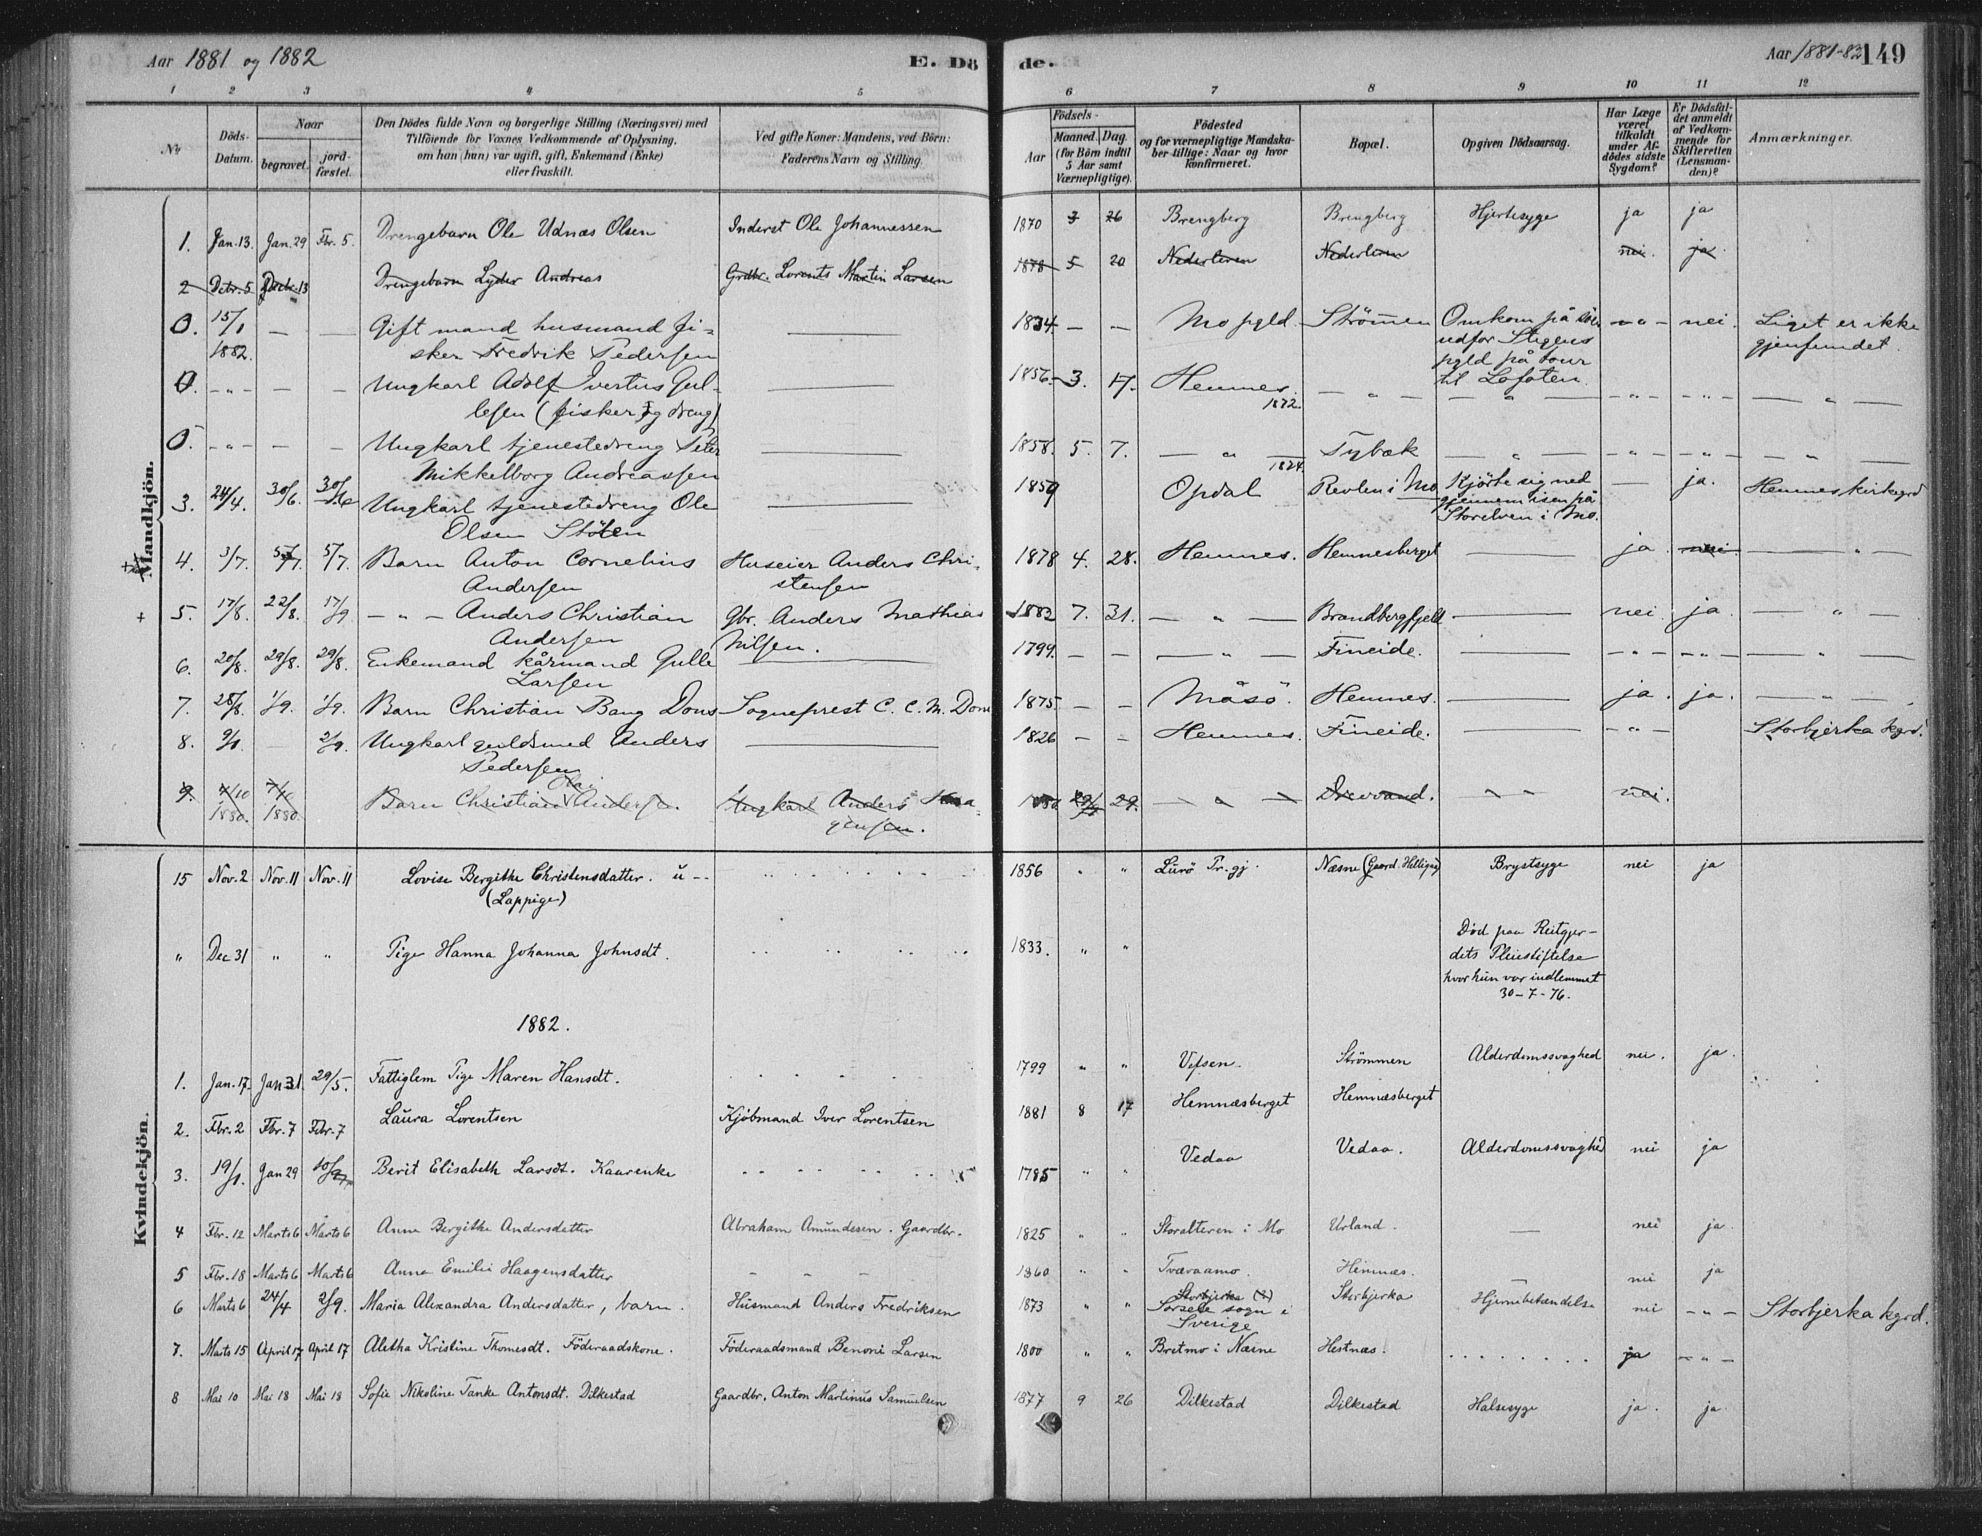 Aar 1881 og 1882
E. Dö
de.
Aar 1881-82 149
1 2 3 4 5 6 7 8 9 10 11 12
No
Döds-
Datum.
Naar
begravet.
jord-
fæstet.
Den Dödes fulde Navn og borgerlige Stilling (Næringsvei) med
Tilföiende for Voxnes Vedkommende af Oplysning,
om han (hun) var ugift, gift, Enkemand (Enke)
eller fraskilt.
Ved gifte Koner: Mandens, ved Börn:
Faderens Navn og Stilling.
Födsels-
Aar
Maaned. Dag.
(for Börn indtil
5 Aar samt
Værnepligtige).
Födested
og for værnepligtige Mandska-
ber tillige: Naar og hvor
konfirmeret.
Bopæl.
Opgiven Dödsaarsag.
Har Læge
været
tilkaldt
under Af-
dödes sidste
Sygdom?
Er Dödsfal-
det anmeldt
af Vedkom-
mende for
Skifteretten
(Lensman-
den)?
Anmærkninger.
Mandkjön.
1. Jan. 13. Jan. 29 Fbr. 5. Drengebarn Ole Udnæs Olsen Inderst Ole Johannessen 1870 3 26 Brengberg Brengberg Hjertesyge ja ja
2 Dcbr. 5 13 Drengebarn Lyder Andreas Grdbr. Lorents Martin Larsen 1878 5 20 Nederleren Nederleren nei. ja
0. 15/1 — — Gift mand husmand fi- — 1834 — — Mo pgld. Strömen Omkom på söen — " — nei. Liget er ikke
1882. sker Fredrik Pedersen udfor Stegens gjenfundet.
pgld på tour
0. - " - — — Ungkarl Adolf Ivertus Gul- — 1856. 3. 17. Hemnes. — " — til Lofoten.
lesen (fisker og dreng) 1872 — " — - " - - " - — " —
0. - " - — — Ungkarl tjenestedreng Peter — 1858. 5. 7. — " — Tybæk — " — - " - - " - — " —
Mikkelborg Andreassen 1874.
3. 24/4. 30/6. 30/6 Ungkarl tjenestedreng Ole 1859 Opdal Revlen i Mo Kjörte sig ned — ja. Hemnes kirkegrd
Olsen Stöten gjennem isen på
Storelven i Mo.
4. 3/7. 5/7. 5/7. Barn Anton Cornelius Huseier Anders Chri- 1878 4. 28. Hemnes. Hemnesberget — ja. nei — " —
Andersen stensen
+ 5. 17/8. 22/8. 17/9 — " — Anders Christian Gbr. Anders Mathias 1882 7. 31. — " — Brandbergfjeld — nei. ja. — " —
Andersen Nilsen.
6. 20/8. 29/8. 29/8. Enkemand kårmand Gulle — 1799. — — — " — Fineide. — - " - - " - — " —
Larsen
7. 28/8. 1/9. 1/9. Barn Christian Bang Dons Sogneprest C. C. M. Dons 1875. — — Måsö. Hemnes. — ja. ja. — " —
8. 9/1. — 2/9. Ungkarl guldsmed Anders — 1826 — — Hemnes. Fineide. — - " - Storbjerka kgrd.
Pedersen
9. 4/10 7/10 Barn Christian Olai Andersen. Ungkarl Anders Haa- 1880 29. — " — Drevvand. nei.
1880. 1880. gensen.
Kvindekjön.
15 Nov. 2 Nov. 11 Nov. 11 Lovise Bergithe Christensdatter. u -- 1856 " " Lurö Pr.gj. Næsne (Gaard. ) Brystsyge nei ja
(Lappige)
" Dec 31 " " Pige Hanna Johanna Johnsdt. 1833. " " Död paa Reitgjer-
dets Pleiestiftelse
hvor hun var indlemmet
30-7-76.
1882.
1. Jan. 17. Jan 31. 29/5. Fattiglem Pige Maren Hansdt. 1799 " " Vefsen. Strömmen Alderdomssvaghed nei. ja.
2. Fbr. 2 Fbr. 7 Fbr. 7 Laura Lorentsen Kjöbmand Iver Lorentsen 1881 8 17 Hemnæsberget Hemnæsberget
3. 19/1. Jan 29 Berit Elisabeth Larsdt. Kaarenke 1785 " " Vedaa Vedaa. Alderdomssvaghed nei ja
4 Fbr. 12 Marts 6 Marts 6 Anne Bergithe Andersdatter Abraham Amundesen. Gaardbr. 1825 " " Storalteren i Mo Urland. — nei ja.
5 Fbr. 18 Marts 6 Marts 6 Anna Emilie Haagensdatter - - - 1860 " " Tveraamo. Hemnæs. nei ja
6 Marts 6 24/4 2/9. Maria Alexandra Andersdatter, barn. Husmand Anders Fredriksen 1873 " " Storbjerka Storbjerka Hjernebetændelse nei - " - Storbjerka kgrd.
Sorsele sogn i
Sverige
7. Marts 15 April 17 April 17 Aletha Kristine Thomesdt. Föderaadskone. Föderaadsmand Benoni Larsen 1800 " " Bretmo i Næsne Hestnæs. ja - " -
8 Mai 10 Mai 18 Mai 18 Sofie Nikoline Tanke Antonsdt. Dilkestad Gaardbr. Anton Martinus Samuelsen 1877 9 26 Dilkestad Dilkestad Halsesyge ja. ja.